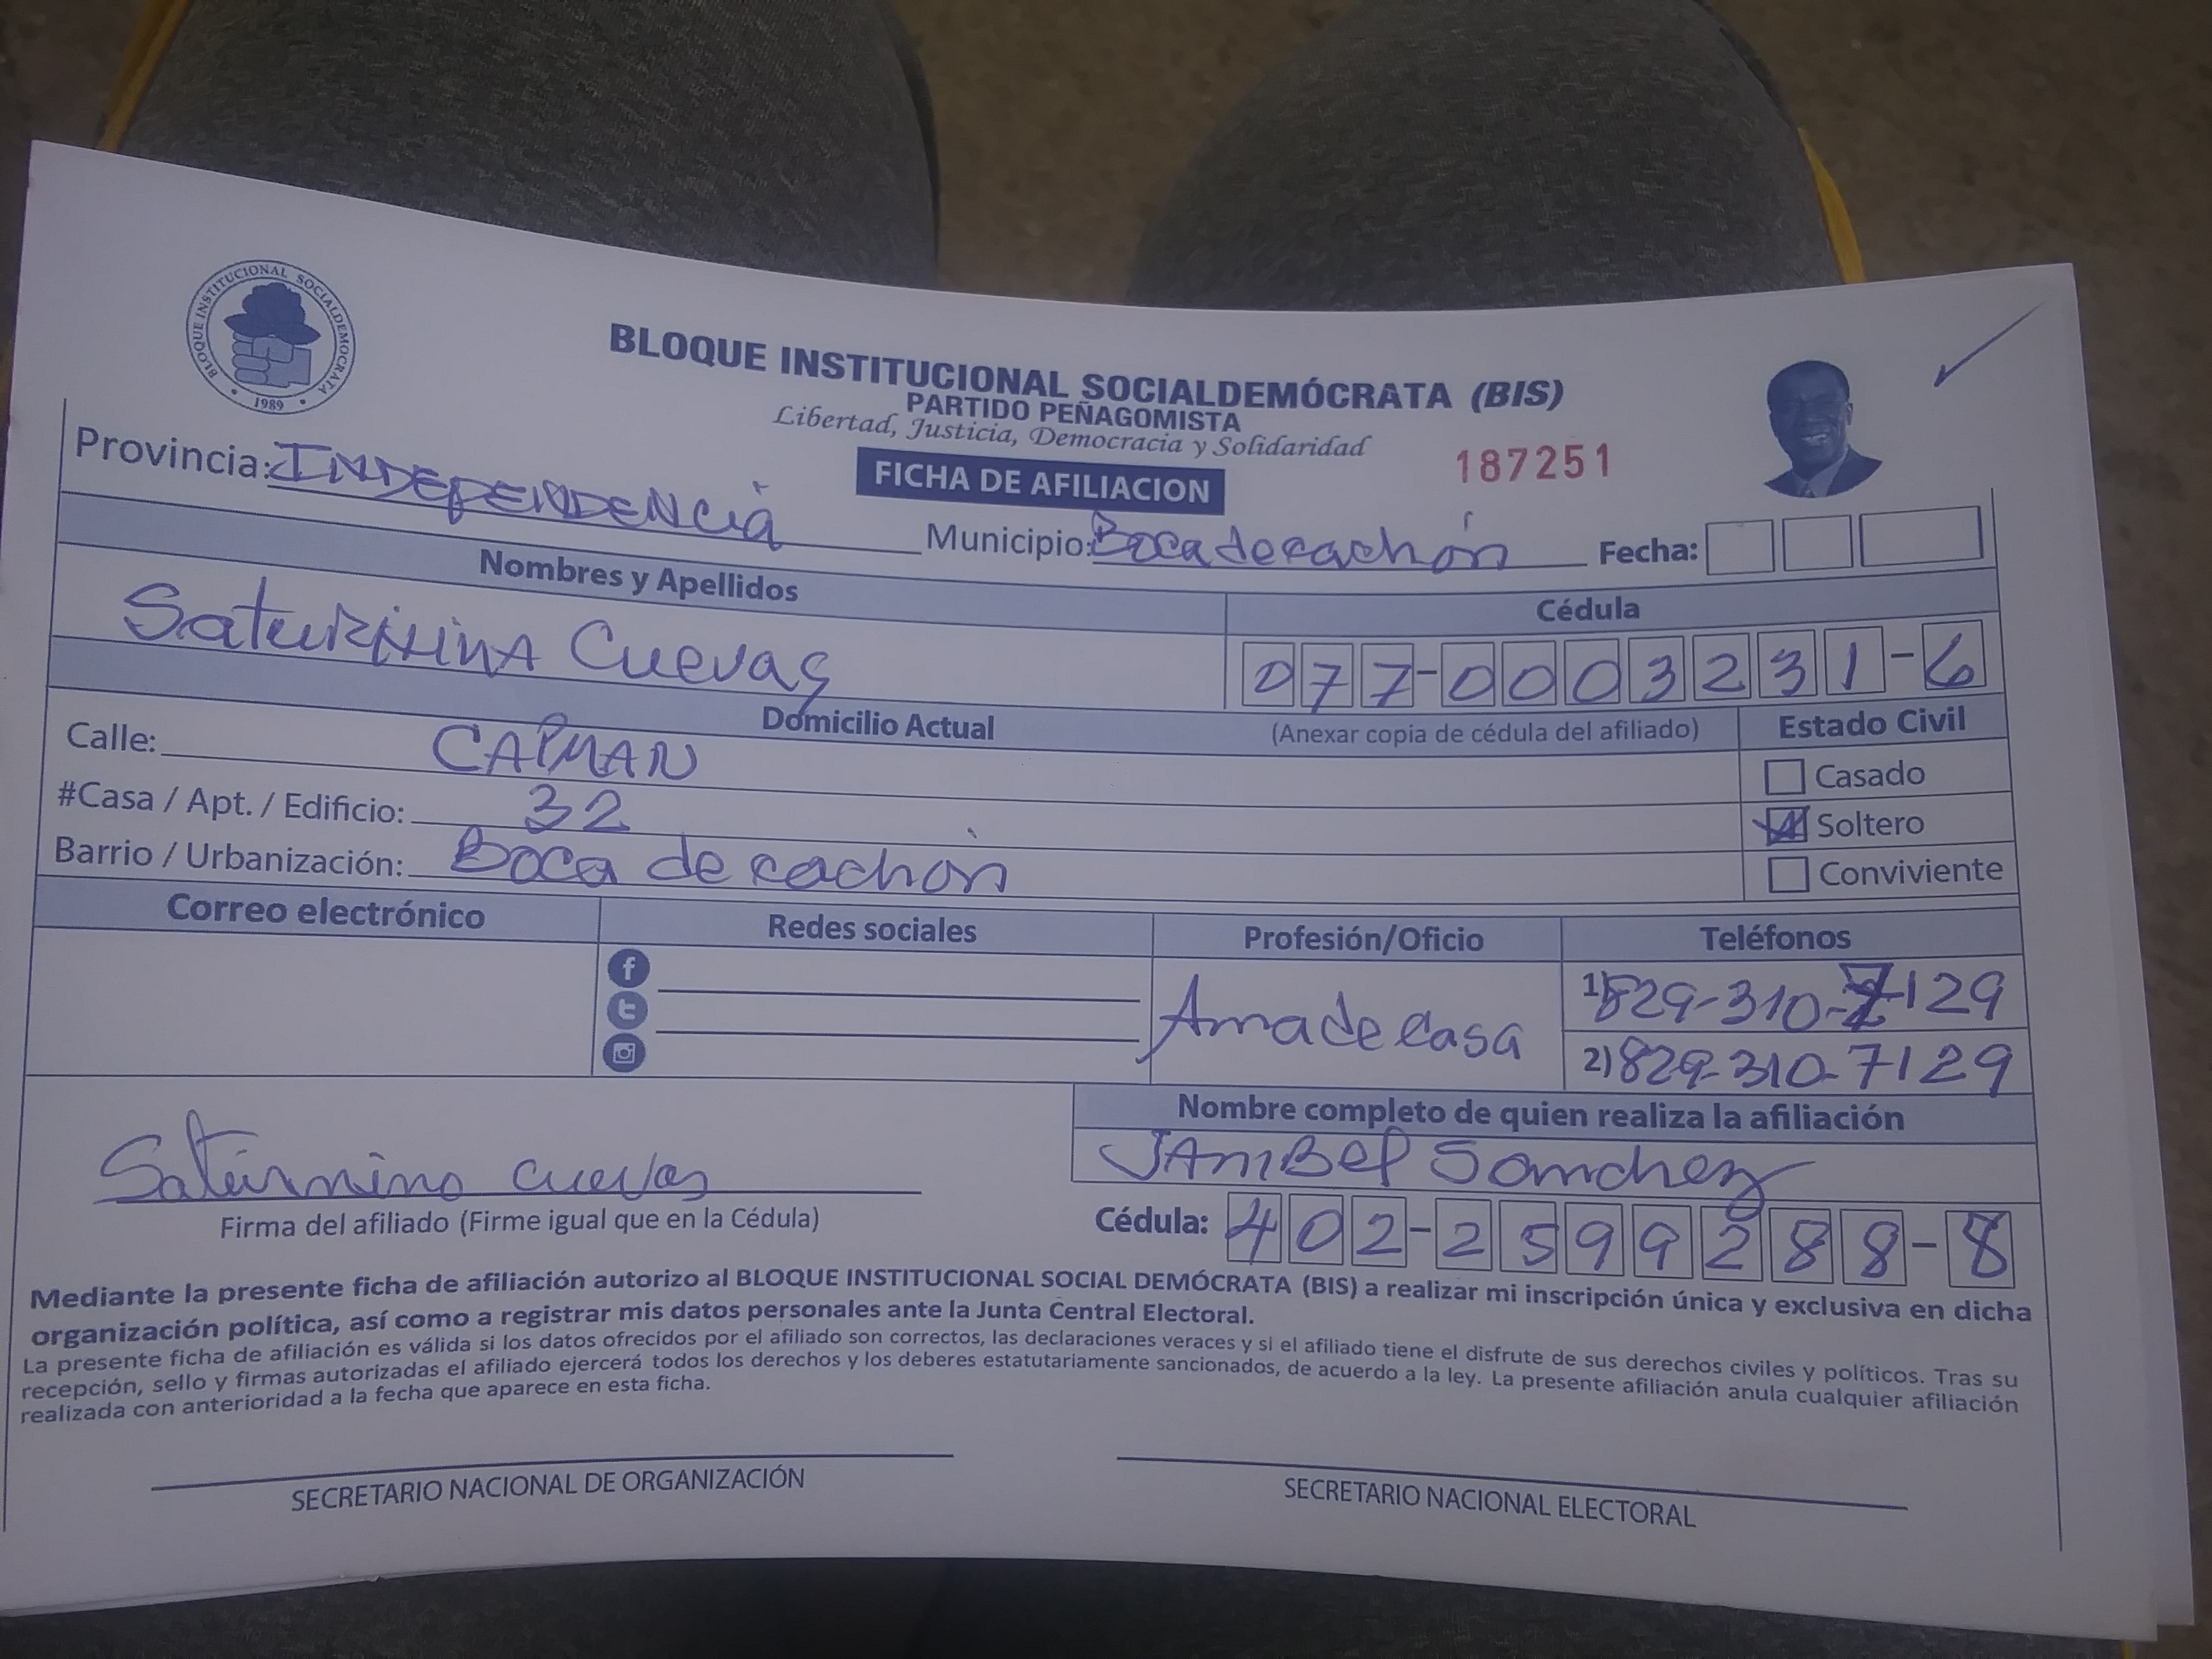 BLOQUE INSTITUCIONAL SOCIALDEMOCRATA
1989
BLOQUE INSTITUCIONAL SOCIALDEMÓCRATA (BIS)
PARTIDO PEÑAGOMISTA
Libertad, Justicia, Democracia y Solidaridad
187251
FICHA DE AFILIACION
Provincia: INDEPENDENCIA Municipio: Boca de cachón Fecha:
Nombres y Apellidos Cédula
Saturnina Cuevas 077-0003231-6
Domicilio Actual (Anexar copia de cédula del afiliado) Estado Civil
Calle: CAIMAN Casado
#Casa / Apt. / Edificio: 32 Soltero
Barrio / Urbanización: Boca de cachón Conviviente
Correo electrónico Redes sociales Profesión/Oficio Teléfonos
Ama de casa 1) 829-310-7129
2) 829-310-7129
Nombre completo de quien realiza la afiliación
JAmBEl Sanchez
Saturnino cuevas
Firma del afiliado (Firme igual que en la Cédula) Cédula: 402-2599288-8
Mediante la presente ficha de afiliación autorizo al BLOQUE INSTITUCIONAL SOCIAL DEMÓCRATA (BIS) a realizar mi inscripción única y exclusiva en dicha
organización política, así como a registrar mis datos personales ante la Junta Central Electoral.
La presente ficha de afiliación es válida si los datos ofrecidos por el afiliado son correctos, las declaraciones veraces y si el afiliado tiene el disfrute de sus derechos civiles y políticos. Tras su
recepción, sello y firmas autorizadas el afiliado ejercerá todos los derechos y los deberes estatutariamente sancionados, de acuerdo a la ley. La presente afiliación anula cualquier afiliación
realizada con anterioridad a la fecha que aparece en esta ficha.
SECRETARIO NACIONAL DE ORGANIZACIÓN SECRETARIO NACIONAL ELECTORAL